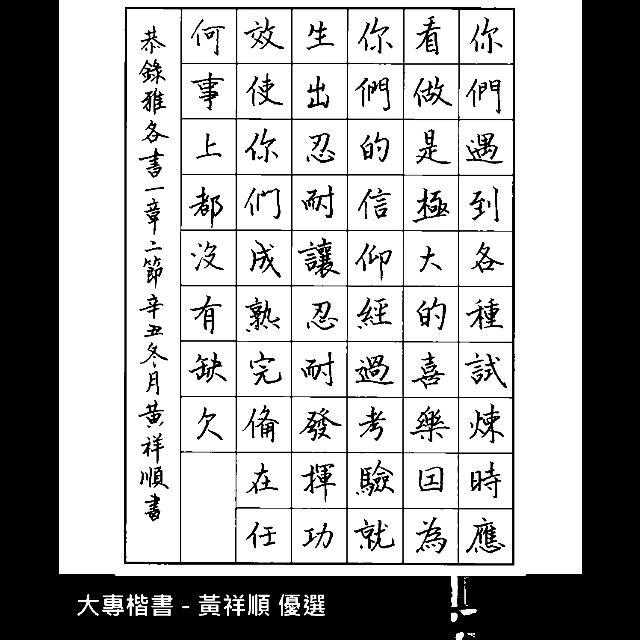 你們遇到各種試煉時應
看做是極大的喜樂因為
你們的信仰經過考驗就
生出忍耐讓忍耐發揮功
效使你们成熟完備在任
何事上都沒有缺欠
恭錄雅各書一章二節辛丑冬月黃祥順書
大專楷書 - 黃祥順 優選